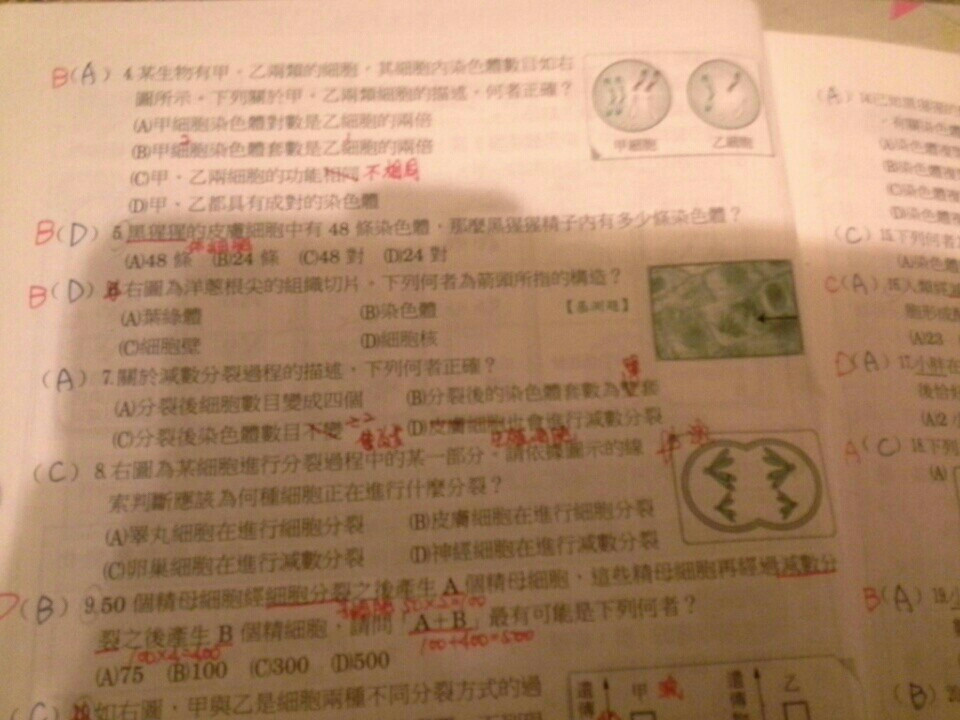 B(A) 4.某生物有甲、乙兩類的細胞,其細胞內染色體數目如右
圖所示。下列關於甲、乙兩類細胞的描述,何者正確?
(A)甲細胞染色體對數是乙細胞的兩倍
(B)甲細胞染色體套數是乙細胞的兩倍
(C)甲、乙兩細胞的功能相同 不相同
(D)甲、乙都具有成對的染色體
甲細胞 乙細胞
B(D) 5.黑猩猩的皮膚細胞中有 48 條染色體,那麼黑猩猩精子內有多少條染色體?
(A)48 條 (B)24 條 (C)48 對 (D)24 對
B(D) 右圖為洋蔥根尖的組織切片,下列何者為箭頭所指的構造?
【基測題】
(A)葉綠體 (B)染色體
(C)細胞壁 (D)細胞核
(A) 7.關於減數分裂過程的描述,下列何者正確?
(A)分裂後細胞數目變成四個 (B)分裂後的染色體套數為雙套
單
(C)分裂後染色體數目不變 (D)皮膚細胞也會進行減數分裂
(C) 8.右圖為某細胞進行分裂過程中的某一部分。請依據圖示的線
索判斷應該為何種細胞正在進行什麼分裂?
(A)睪丸細胞在進行細胞分裂 (B)皮膚細胞在進行細胞分裂
(C)卵巢細胞在進行減數分裂 (D)神經細胞在進行減數分裂
D(B) 9.50 個精母細胞經細胞分裂之後產生 A 個精母細胞,這些精母細胞再經過減數分
50×2=100
裂之後產生 B 個精細胞,請問「A+B」最有可能是下列何者?
100×4=400 100+400=500
(A)75 (B)100 (C)300 (D)500
(C) 10.如右圖,甲與乙是細胞兩種不同分裂方式的過
遺傳 甲 減 遺傳 乙
(A) 14.已知黑猩猩的
有關染色
(A)染色體複
(B)染色體複
(C)染色體複
(D)染色體複
(C) 15.下列何者
(A)染色體
C(A) 16.人類經減
胞形成
(A)23
D(A) 17.小胖在
後恰好
(A)2
A(C) 18.下列
(A)
B(A) 19.小
(B)